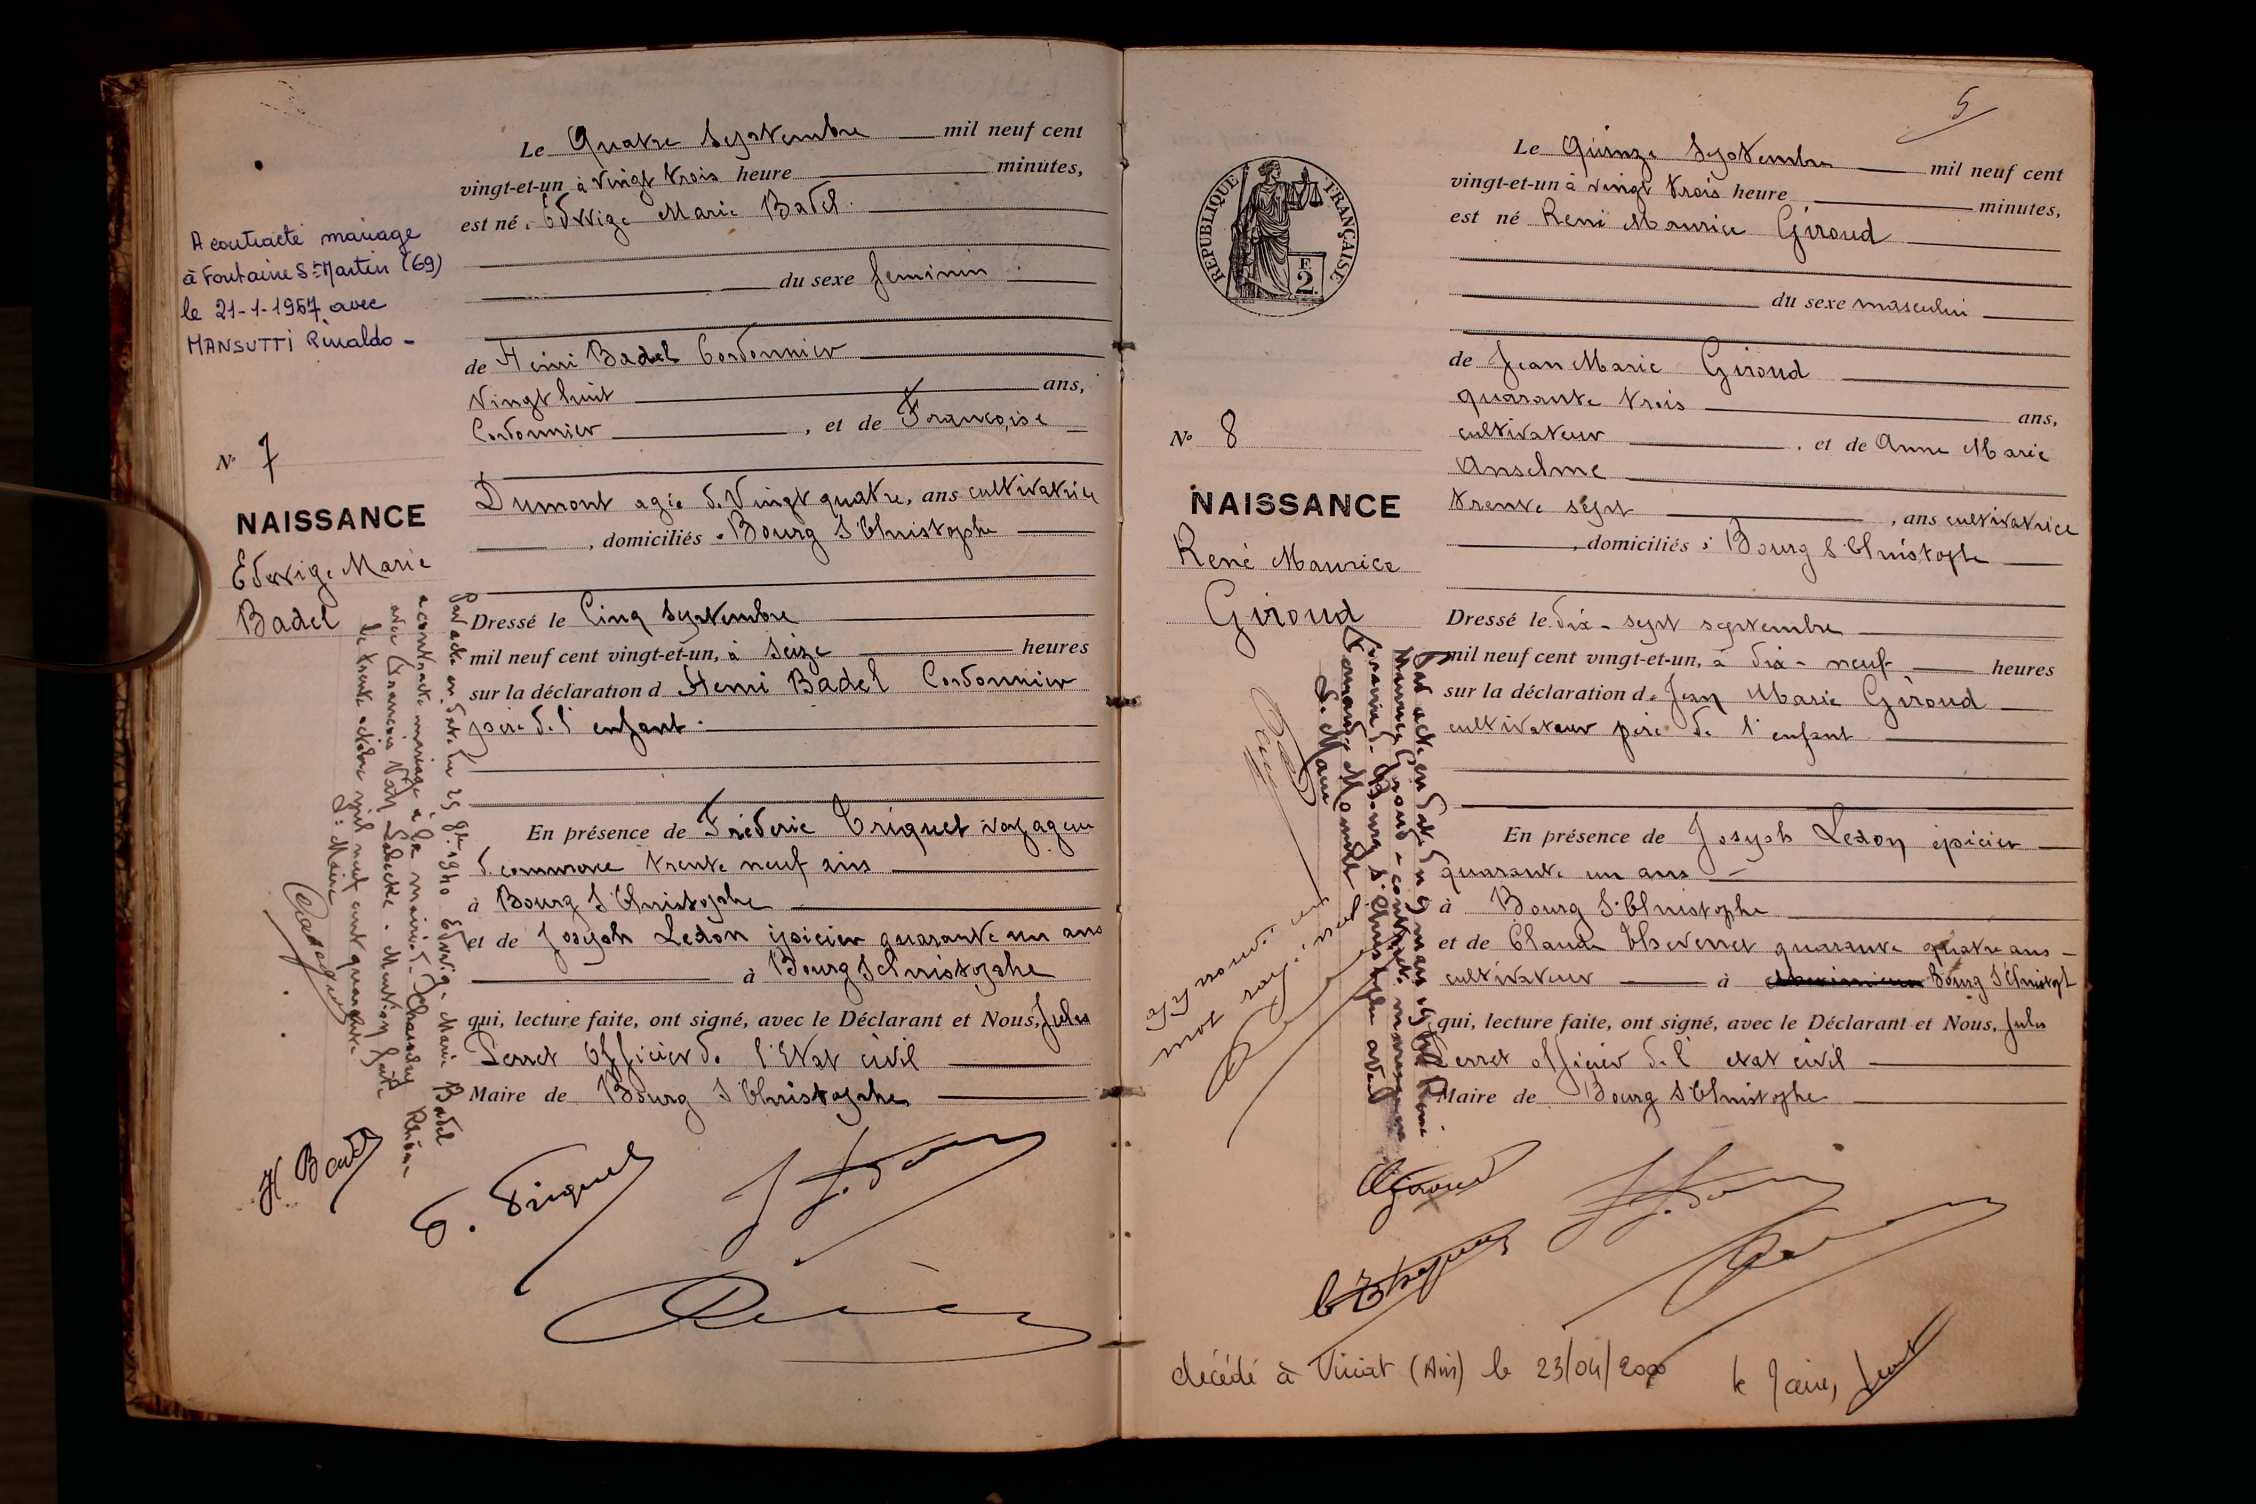 Le Quatre Septembre mil neuf cent
vingt-et-un à vingt trois heure minutes,
est né Edwige Marie Badel
du sexe feminin
de Henri Badel Cordonnier
Vingt huit ans,
Cordonnier, et de Françoise
Dumont agée de Vingt quatre, ans cultivatrice
, domiciliés à Bourg St Christophe
Dressé le Cinq Septembre
mil neuf cent vingt-et-un, à Seize heures
sur la déclaration d Henri Badel Cordonnier
père de l'enfant
En présence de Fréderic Triquet voyageur
d commerce trente neuf ans
à Bourg St Christophe
et de Joseph Ledon épicier quarante un ans
à Bourg St Christophe
qui, lecture faite, ont signé, avec le Déclarant et Nous, Jules
Perret Officier de l'Etat civil
Maire de Bourg St Christophe
A contracté mariage
à Fontaine St Martin (69)
le 21-1-1967 avec
MANSUTTI Rinaldo -
No 7
NAISSANCE
Edwige Marie
Badel
Par acte en date du 25 1940 Edwige Marie Badel
a contracté mariage à la mairie de Rhône
avec François Mention faite
le trente octobre mil neuf cent quarante
Le Maire
H Badel
Triquet
5
RÉPUBLIQUE FRANÇAISE
F.
2.
Le Quinze Septembre mil neuf cent
vingt-et-un à vingt trois heure minutes,
est né René Maurice Giroud
du sexe masculin
de Jean Marie Giroud
quarante trois ans,
cultivateur, et de Anne Marie
Anselme
trente sept, ans cultivatrice
, domiciliés à Bourg St Christophe
Dressé le dix-sept septembre
mil neuf cent vingt-et-un, à dix-neuf heures
sur la déclaration de Jean Marie Giroud
cultivateur père de l'enfant
En présence de Joseph Ledon épicier
quarante un ans
à Bourg St Christophe
et de Claude Thevenet quarante quatre ans
cultivateur à Bourg St Christophe
qui, lecture faite, ont signé, avec le Déclarant et Nous, Jules
Perret officier de l'etat civil
Maire de Bourg St Christophe
No 8
NAISSANCE
René Maurice
Giroud
Par acte en date du 9 mars René
Maurice Giroud a contracté mariage
Bourg St Christophe avec
Le Maire
approuvé un
mot rayé nul
Giroud
décédé à Viriat (Ain) le 23/04/2000 le Maire,